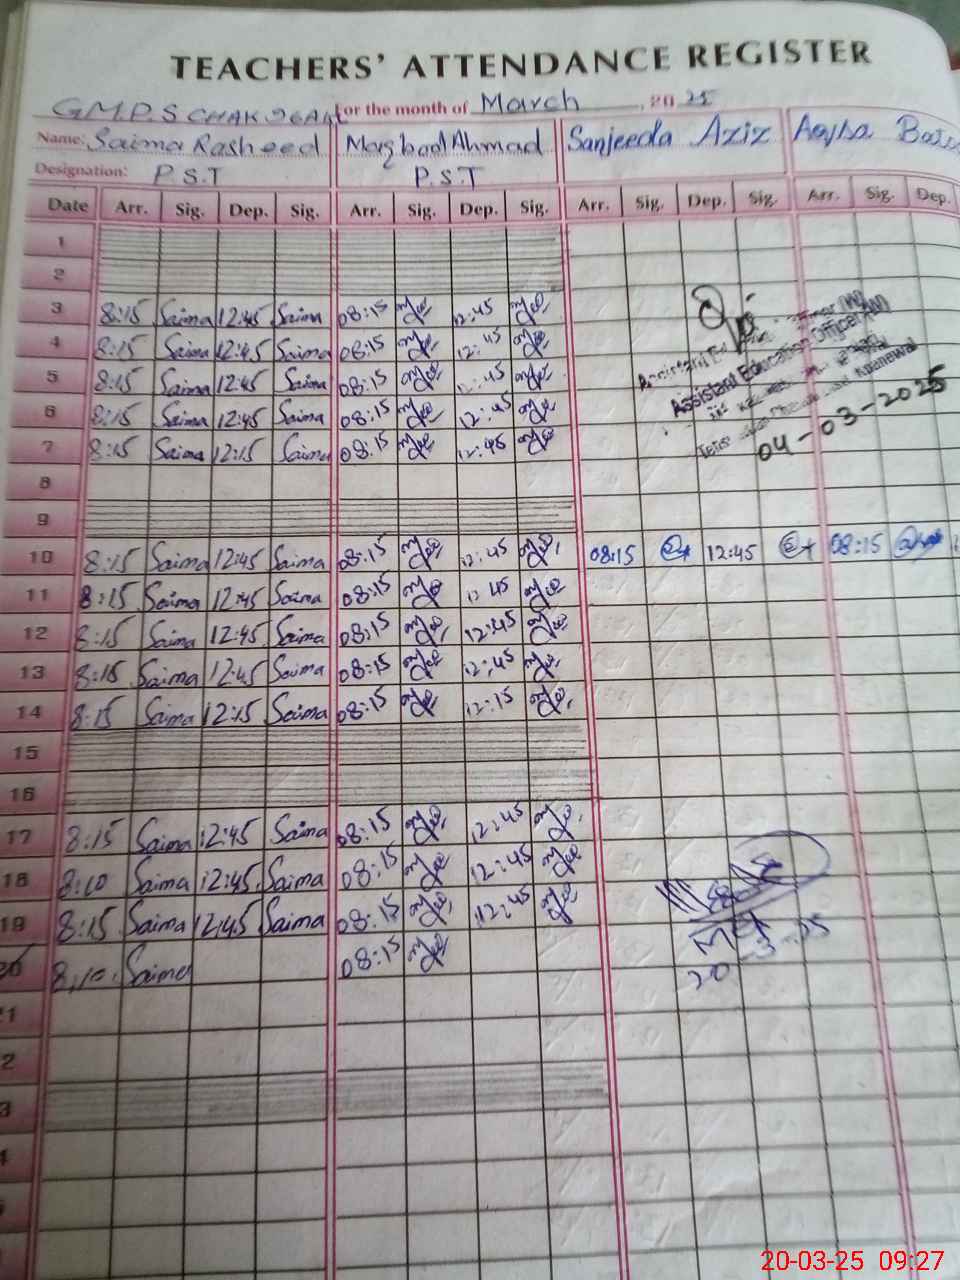 TEACHERS' ATTENDANCE REGISTER
GMPS CHAK For the month of March, 2025
Name: Saima Rasheed Maqbool Ahmad Sanjeeda Aziz
Designation: P.S.T P.S.T
Date Arr. Sig. Dep. Sig. Arr. Sig. Dep. Sig. Arr. Sig. Dep. Sig. Arr. Sig. Dep.
1
2
3 8:15 Saima 12:45 Saima 08:15 12:45
4 8:15 Saima 12:45 Saima 08:15 12:45
5 8:15 Saima 12:45 Saima 08:15 12:45
6 8:15 Saima 12:45 Saima 08:15 12:45
7 8:15 Saima 12:15 Saima 08:15 12:45
Assistant Education Officer (W)
Khanewal
04-03-2025
8
9
10 8:15 Saima 12:45 Saima 08:15 12:45 08:15 12:45 08:15
11 8:15 Saima 12:45 Saima 08:15 12:45
12 8:15 Saima 12:45 Saima 08:15 12:45
13 8:15 Saima 12:45 Saima 08:15 12:45
14 8:15 Saima 12:15 Saima 08:15 12:15
15
16
17 8:15 Saima 12:45 Saima 08:15 12:45
18 8:10 Saima 12:45 Saima 08:15 12:45
19 8:15 Saima 12:45 Saima 08:15 12:45
20 8:10 Saima 08:15
20-3-25
1
2
3
4
20-03-25 09:27